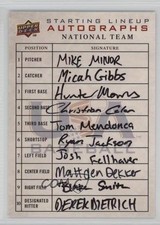 STARTING LINEUP
AUTOGRAPHS
NATIONAL TEAM
POSITION SIGNATURE
PITCHER MIKE MINOR
CATCHER Micah Gibbs
FIRST BASE Hunter Morris
SECOND BASE Christian Colon
THIRD BASE Tom Mendonca
SHORTSTOP Ryan Jackson
LEFT FIELD Josh Fellhauer
CENTER FIELD Matt den Dekker
RIGHT FIELD Blake Smith
DESIGNATED HITTER DEREK DIETRICH
BASEBALL